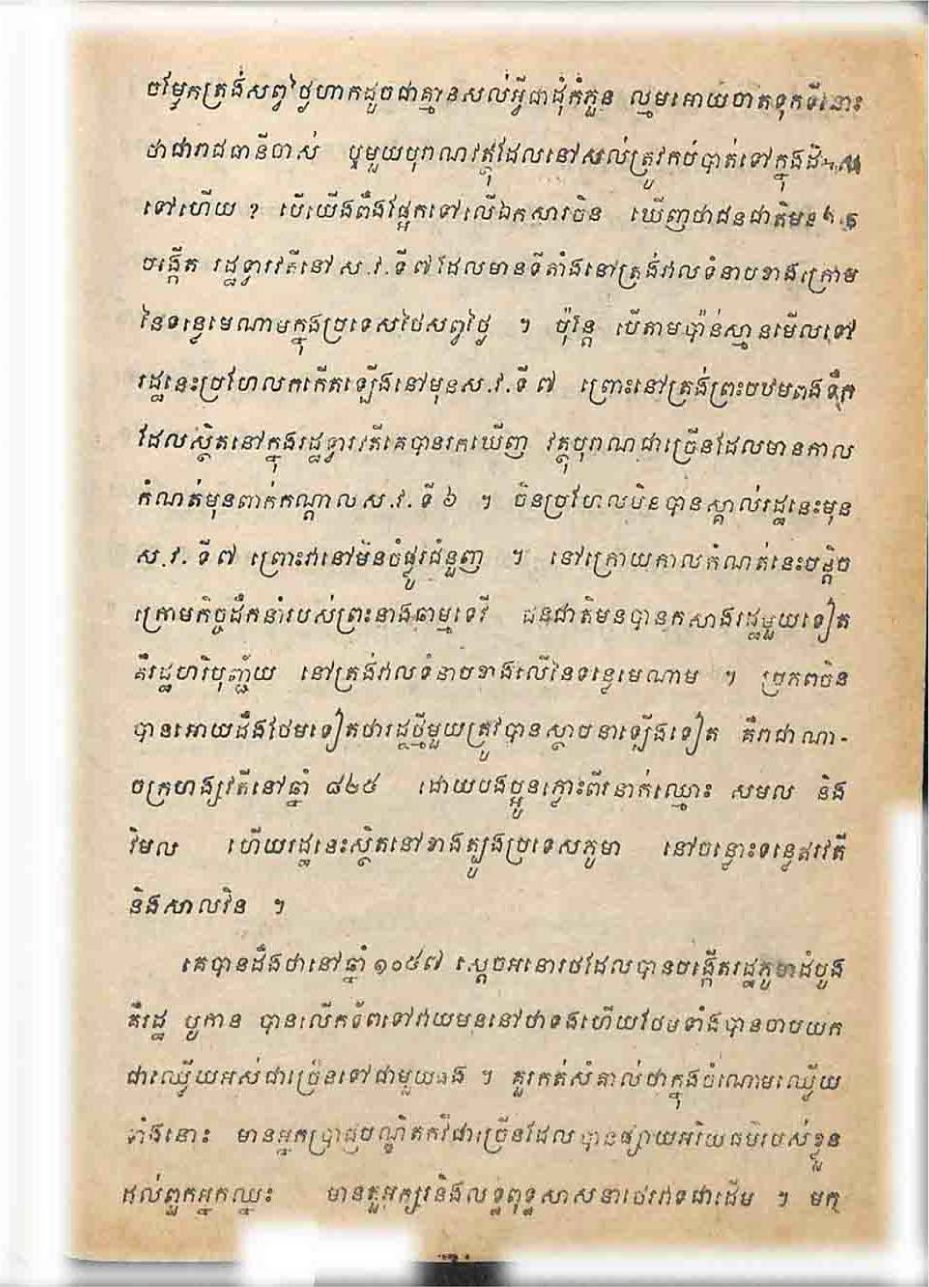 ចម្លែកត្រង់សព្វថ្ងៃហាកដូចជាគ្មានសល់អ្វីជាដុំកំភួន ល្មមអោយចាត់ទុកទីនោះ
ថាជារាជធានីចាស់ ឬមួយបុរាណវត្ថុដែលនៅសល់ត្រូវកប់បាត់ទៅក្នុងដី
ទៅហើយ ? បើយើងពឹងផ្អែកទៅលើឯកសារចិន ឃើញថាជនជាតិមន
បង្កើត រដ្ឋទ្វារវតីនៅ ស.វ. ទី ៧ ដែលមានទីតាំងនៅត្រង់វាលទំនាបខាងក្រោម
នៃទន្លេមេណាមក្នុងប្រទេសថៃសព្វថ្ងៃ ។ ប៉ុន្តែ បើតាមប៉ាន់ស្មានមើលទៅ
រដ្ឋនេះប្រហែលកកើតឡើងនៅមុនស.វ.ទី ៧ ព្រោះនៅត្រង់ព្រះបឋមពងទឹក
ដែលស្ថិតនៅក្នុងរដ្ឋទ្វារវតីគេបានរកឃើញ វត្ថុបុរាណជាច្រើនដែលមានកាល
កំណត់មុនពាក់កណ្ដាលស.វ. ទី ៦ ។ ចិនប្រហែលមិនបានស្គាល់រដ្ឋនេះមុន
ស.វ. ទី ៧ ព្រោះវានៅមិនចំផ្លូវជំនួញ ។ នៅក្រោយកាលកំណត់នេះបន្តិច
ក្រោមកិច្ចដឹកនាំរបស់ព្រះនាងឆាម្មទេវី ជនជាតិមនបានកសាងរដ្ឋមួយទៀត
គឺរដ្ឋហរិបុញ្ជ័យ នៅត្រង់វាលទំនាបខាងលើនៃទន្លេមេណាម ។ ប្រភពចិន
បានអោយដឹងថែមទៀតថារដ្ឋថ្មីមួយត្រូវបានស្ថាបនាឡើងទៀត គឺរាជាណា-
ចក្រហង្សវតីនៅឆ្នាំ ៨២៥ ដោយបងប្អូនភ្លោះពីរនាក់ឈ្មោះ សមល និង
វិមល ហើយរដ្ឋនេះស្ថិតនៅខាងត្បូងប្រទេសភូមា នៅចន្លោះទន្លេឥរវតី
និងសាលវិន ។
គេបានដឹងថានៅឆ្នាំ ១០៥៧ ស្ដេចអនោរថដែលបានបង្កើតរដ្ឋភូមាដំបូង
គឺរដ្ឋ ប៉ូកាន បានលើកទ័ពទៅវាយមននៅថាទងហើយថែមទាំងបានចាប់យក
ជាឈ្លើយអស់ជាច្រើនទៅជាមួយផង ។ គួរកត់សំគាល់ថាក្នុងចំណោមឈ្លើយ
ទាំងនោះ មានអ្នកប្រាជ្ញបណ្ឌិតកវីជាច្រើនដែលបានផ្សាយអរិយធម៌របស់ខ្លួន
ដល់ពួកអ្នកឈ្នះ មានតួអក្សរនិងលទ្ធពុទ្ធសាសនាថេរវាទជាដើម ។ មក